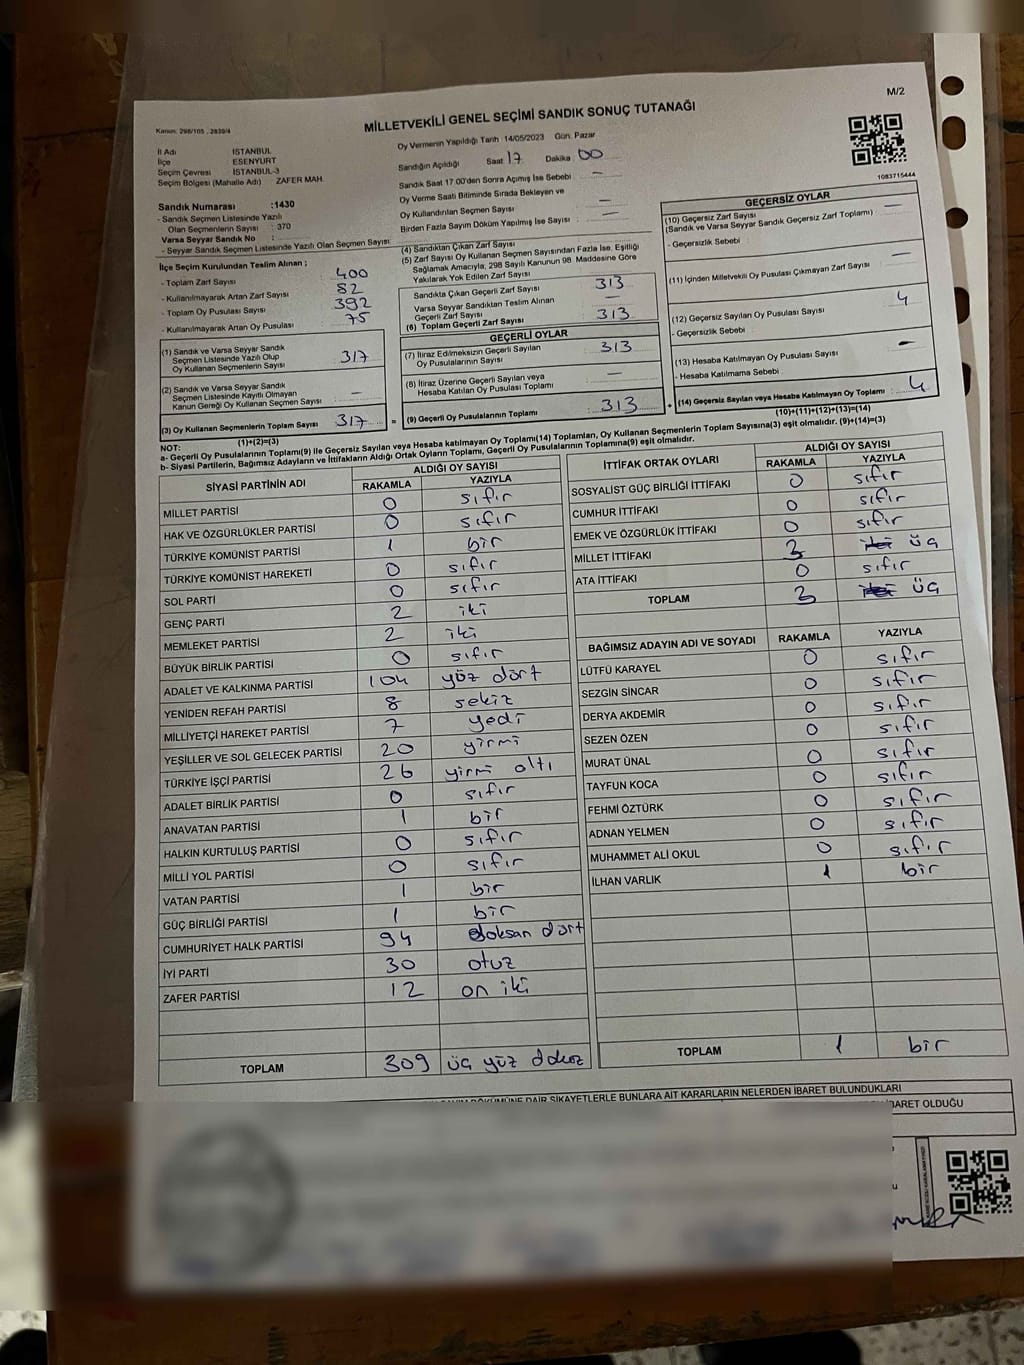 M/2
MİLLETVEKİLİ GENEL SEÇİMİ SANDIK SONUÇ TUTANAĞI
Kanun: 298/105 , 2839/4
İl Adı İSTANBUL
İlçe ESENYURT
Seçim Çevresi İSTANBUL-3
Seçim Bölgesi (Mahalle Adı) ZAFER MAH.
Sandık Numarası :1430
- Sandık Seçmen Listesinde Yazılı
Olan Seçmenlerin Sayısı : 370
Varsa Seyyar Sandık No :
- Seyyar Sandık Seçmen Listesinde Yazılı Olan Seçmen Sayısı
Oy Vermenin Yapıldığı Tarih 14/05/2023 Gün. Pazar
Sandığın Açıldığı Saat 17 Dakika 00
Sandık Saat 17.00'den Sonra Açımış İse Sebebi –
Oy Verme Saati Bitiminde Sırada Bekleyen ve
Oy Kullandırılan Seçmen Sayısı –
Birden Fazla Sayım Döküm Yapılmış İse Sayısı : –
1083715444
İlçe Seçim Kurulundan Teslim Alınan :
- Toplam Zarf Sayısı 400
- Kullanılmayarak Artan Zarf Sayısı 82
- Toplam Oy Pusulası Sayısı 392
- Kullanılmayarak Artan Oy Pusulası 75
(1) Sandık ve Varsa Seyyar Sandık
Seçmen Listesinde Yazılı Olup
Oy Kullanan Seçmenlerin Sayısı 317
(2) Sandık ve Varsa Seyyar Sandık
Seçmen Listesinde Kayıtlı Olmayan
Kanun Gereği Oy Kullanan Seçmen Sayısı –
(3) Oy Kullanan Seçmenlerin Toplam Sayısı 317
(1)+(2)=(3)
(4) Sandıktan Çıkan Zarf Sayısı
(5) Zarf Sayısı Oy Kullanan Seçmen Sayısından Fazla İse, Eşitliği
Sağlamak Amacıyla, 298 Sayılı Kanunun 98 Maddesine Göre
Yakılarak Yok Edilen Zarf Sayısı
Sandıkta Çıkan Geçerli Zarf Sayısı 313
Varsa Seyyar Sandıktan Teslim Alınan
Geçerli Zarf Sayısı –
(6) Toplam Geçerli Zarf Sayısı 313
GEÇERLİ OYLAR
(7) İtiraz Edilmeksizin Geçerli Sayılan
Oy Pusulalarının Sayısı 313
(8) İtiraz Üzerine Geçerli Sayılan veya
Hesaba Katılan Oy Pusulası Toplamı –
= (9) Geçerli Oy Pusulalarının Toplamı : 313
GEÇERSİZ OYLAR
(10) Geçersiz Zarf Sayısı –
(Sandık ve Varsa Seyyar Sandık Geçersiz Zarf Toplamı)
- Geçersizlik Sebebi :
(11) İçinden Milletvekili Oy Pusulası Çıkmayan Zarf Sayısı –
(12) Geçersiz Sayılan Oy Pusulası Sayısı 4
- Geçersizlik Sebebi
(13) Hesaba Katılmayan Oy Pusulası Sayısı –
- Hesaba Katılmama Sebebi
+ (14) Geçersiz Sayılan veya Hesaba Katılmayan Oy Toplamı : 4
(10)+(11)+(12)+(13)=(14)
NOT:
a- Geçerli Oy Pusulalarının Toplamı(9) ile Geçersiz Sayılan veya Hesaba katılmayan Oy Toplamı(14) Toplamları, Oy Kullanan Seçmenlerin Toplam Sayısına(3) eşit olmalıdır. (9)+(14)=(3)
b- Siyasi Partilerin, Bağımsız Adayların ve İttifakların Aldığı Ortak Oyların Toplamı, Geçerli Oy Pusulalarının Toplamına(9) eşit olmalıdır.
SİYASİ PARTİNİN ADI ALDIĞI OY SAYISI
RAKAMLA YAZIYLA
MİLLET PARTİSİ 0 sıfır
HAK VE ÖZGÜRLÜKLER PARTİSİ 0 sıfır
TÜRKİYE KOMÜNİST PARTİSİ 1 bir
TÜRKİYE KOMÜNİST HAREKETİ 0 sıfır
SOL PARTİ 0 sıfır
GENÇ PARTİ 2 iki
MEMLEKET PARTİSİ 2 iki
BÜYÜK BİRLİK PARTİSİ 0 sıfır
ADALET VE KALKINMA PARTİSİ 104 yüz dört
YENİDEN REFAH PARTİSİ 8 sekiz
MİLLİYETÇİ HAREKET PARTİSİ 7 yedi
YEŞİLLER VE SOL GELECEK PARTİSİ 20 yirmi
TÜRKİYE İŞÇİ PARTİSİ 26 yirmi altı
ADALET BİRLİK PARTİSİ 0 sıfır
ANAVATAN PARTİSİ 1 bir
HALKIN KURTULUŞ PARTİSİ 0 sıfır
MİLLİ YOL PARTİSİ 0 sıfır
VATAN PARTİSİ 1 bir
GÜÇ BİRLİĞİ PARTİSİ 1 bir
CUMHURİYET HALK PARTİSİ 94 doksan dört
İYİ PARTİ 30 otuz
ZAFER PARTİSİ 12 on iki
TOPLAM 309 üç yüz dokuz
İTTİFAK ORTAK OYLARI ALDIĞI OY SAYISI
RAKAMLA YAZIYLA
SOSYALİST GÜÇ BİRLİĞİ İTTİFAKI 0 sıfır
CUMHUR İTTİFAKI 0 sıfır
EMEK VE ÖZGÜRLÜK İTTİFAKI 0 sıfır
MİLLET İTTİFAKI 3 iki üç
ATA İTTİFAKI 0 sıfır
TOPLAM 3 iki üç
BAĞIMSIZ ADAYIN ADI VE SOYADI RAKAMLA YAZIYLA
LÜTFÜ KARAYEL 0 sıfır
SEZGİN SİNCAR 0 sıfır
DERYA AKDEMİR 0 sıfır
SEZEN ÖZEN 0 sıfır
MURAT ÜNAL 0 sıfır
TAYFUN KOCA 0 sıfır
FEHMİ ÖZTÜRK 0 sıfır
ADNAN YELMEN 0 sıfır
MUHAMMET ALİ OKUL 0 sıfır
İLHAN VARLIK 1 bir
TOPLAM 1 bir
DÖKÜMÜNE DAİR ŞİKAYETLERLE BUNLARA AİT KARARLARIN NELERDEN İBARET BULUNDUKLARI
İBARET OLDUĞU